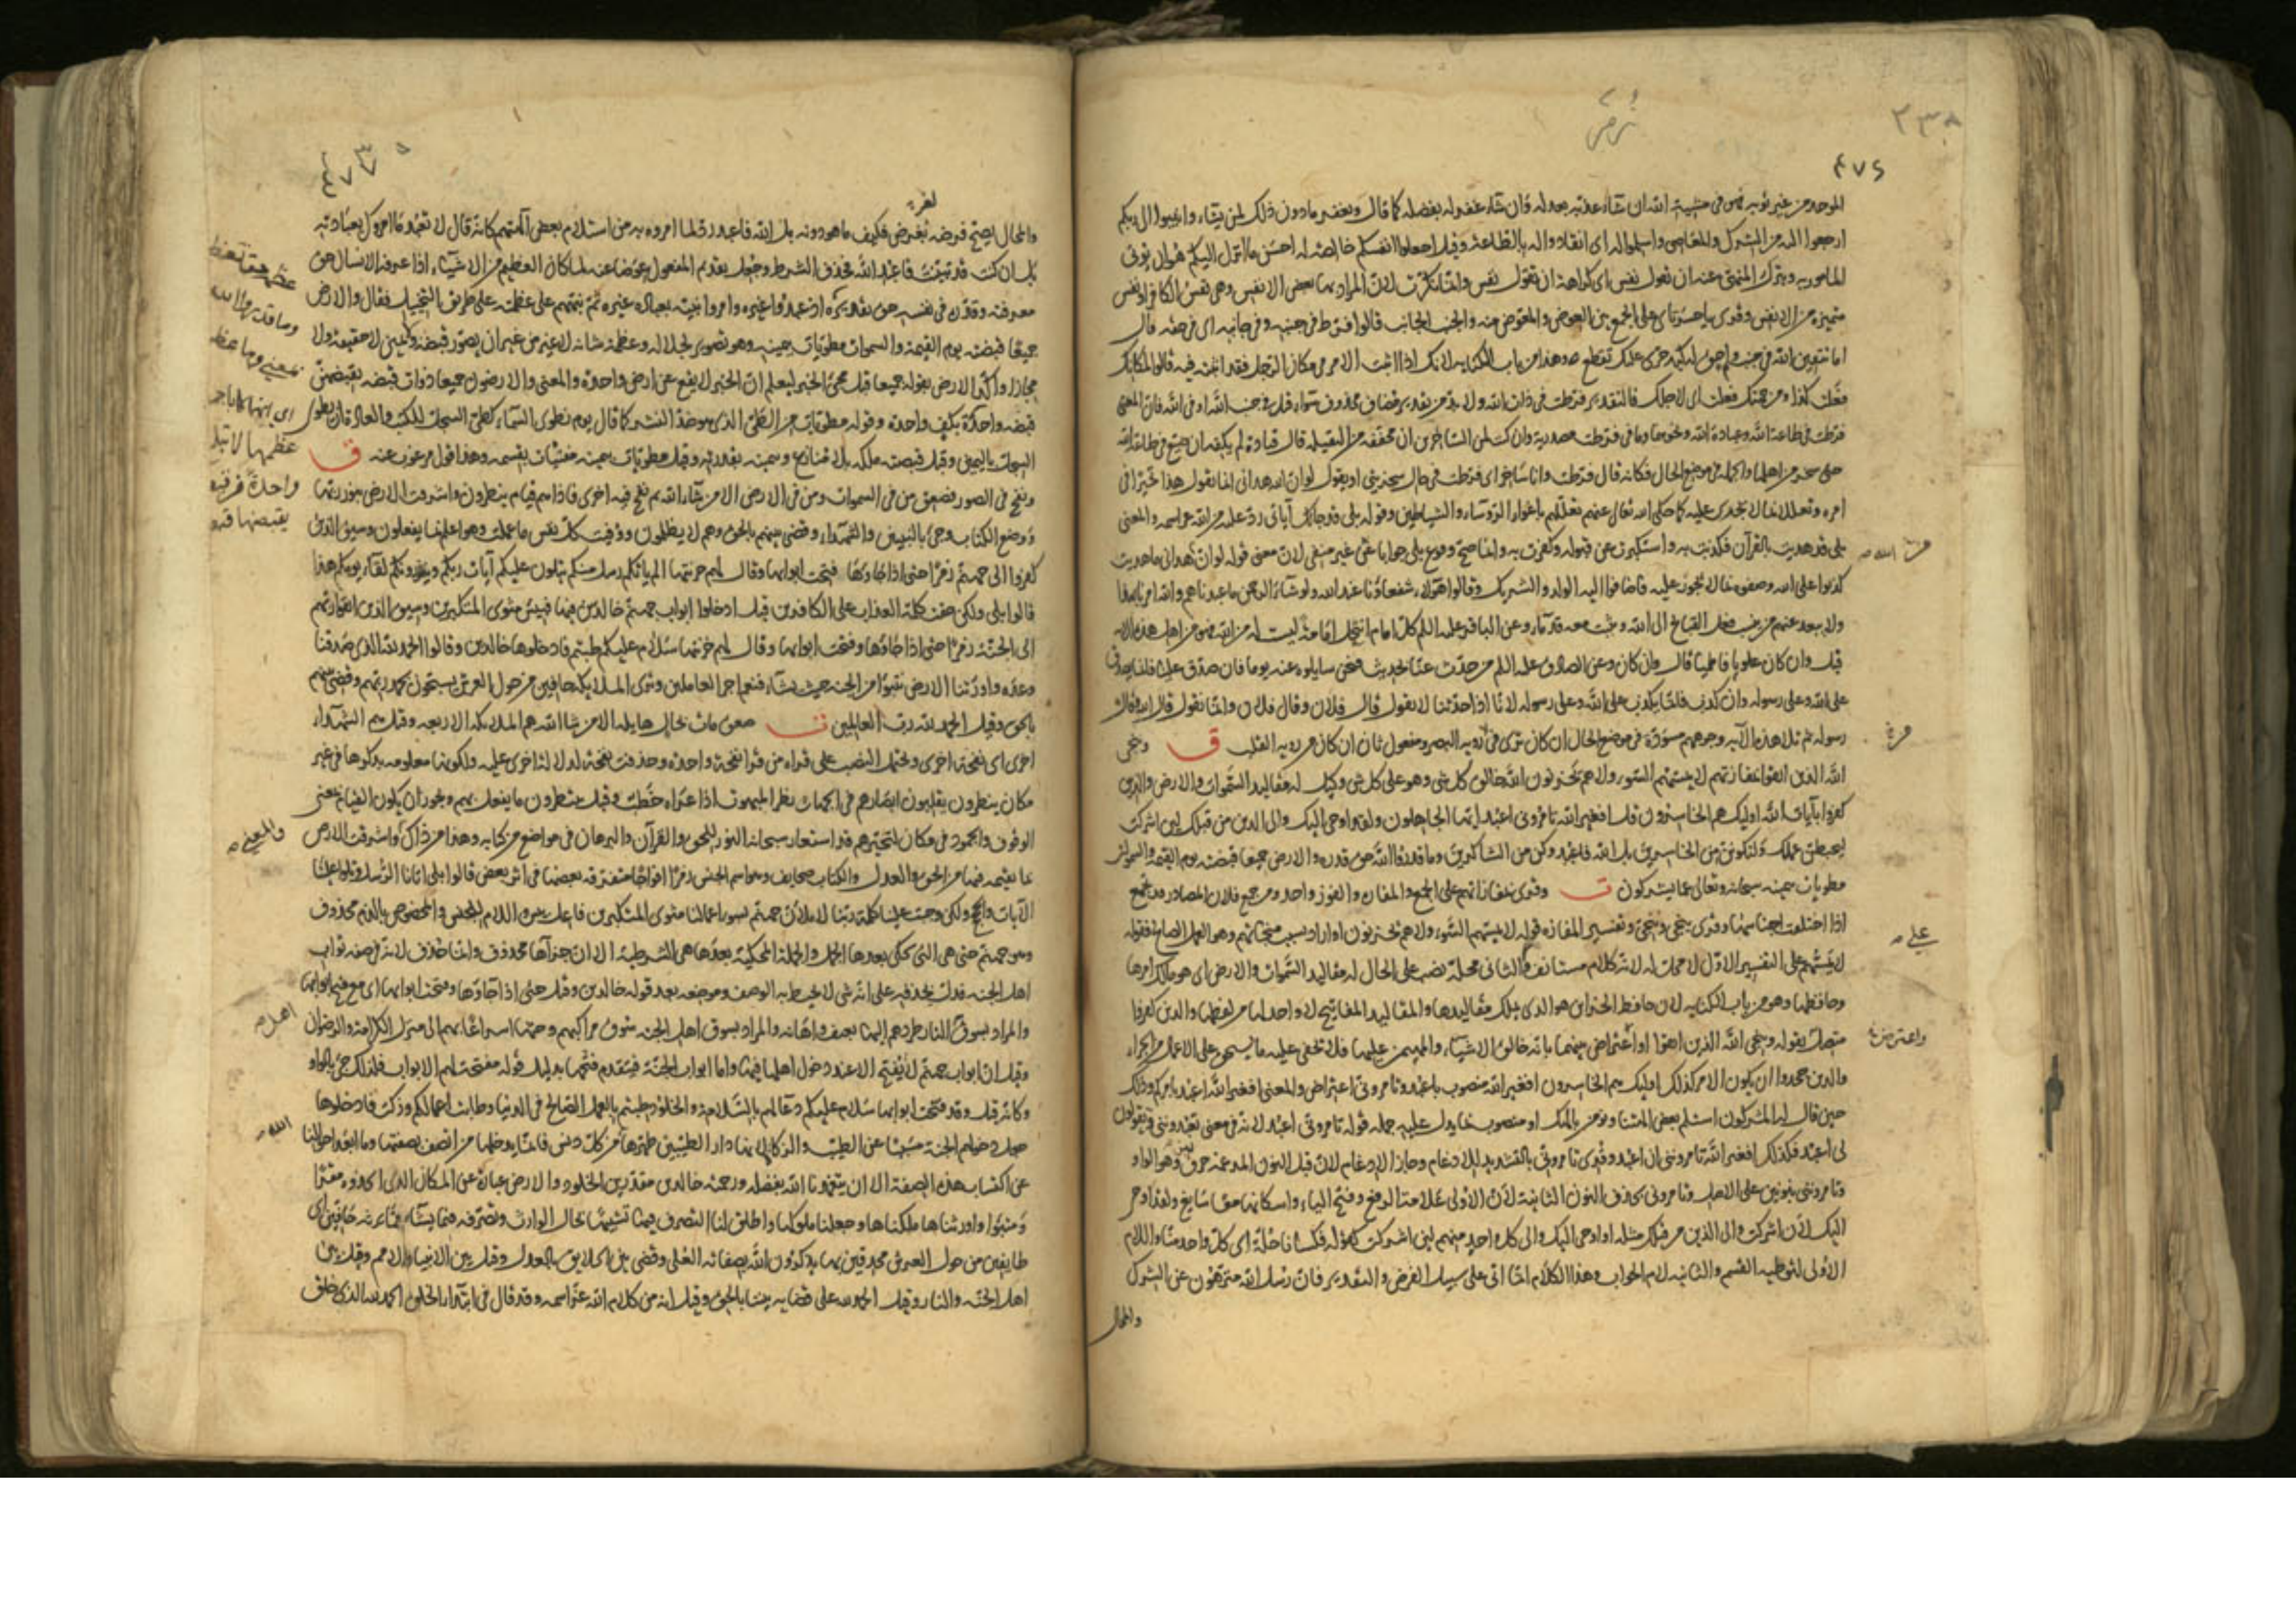 ٢٣٨
زمر
٤٧٤
الموحد من غير توبه فهو فى مشيه الله ان شاء عذبه بعدله وان شاء غفر له بفضله كما قال ويغفر مادون ذلك لمن يشاء وانيبوا الى ربكم
ارجعوا اليه من الشرك والمعاصى واسلموا له اى انقادوا له بالطاعة وقيل اجعلوا انفسكم خالصة له احسن ما انزل اليكم هو ان يؤتى
المامور به ويترك المنهى عنه ان تقول نفس اى كراهة ان تقول نفس وانما نكرت لان المراد بها بعض الانفس وهى نفس الكافر او نفس
متميزة من الانفس وقرى يا حسرتاى على الجمع بين العوض والمعوض منه والجنب الجانب قالوا فرط فى جنبه وفى جانبه اى فى حقه قال
اما تتقين الله فى جنب وامق له كبد حرى عليك تقطع وهذا من باب الكناية لانك اذا اثبت الامر فى مكان الرجل فقد اثبته فيه قالوا لمكانك
فعلت كذا ومن جهتك فعلت اى لاجلك فالتقدير فرطت فى ذات الله ولا بد من تقدير مضاف محذوف سواء قيل فى جنب الله او فى الله فان المعنى
فرطت فى طاعة الله وعبادة الله ونحوهما وما فى فرطت مصدرية وان كنت لمن الساخرين ان مخففه من الثقيله قال قتادة لم يكفه ان ضيع طاعة الله
حتى سخر من اهلها والجملة فى موضع الحال فكانه قال فرطت وانا ساخر اى فرطت فى حال سخريتى او يقول لو ان الله هدانى انما يقول هذا تحيرا فى
امره وتعللا بما لا يجدى عليه كما حكى الله تعالى عنهم تعللهم باغواء الرؤساء والشياطين وقوله بلى قد جاءتك آياتى رد عليه من الله عز اسمه والمعنى
بلى قد هديت بالقرآن فكذبت به واستكبرت عن قبوله وكفرت به وانما صح وقوع بلى جوابا عن غير منفى لان معنى قوله لو ان الله هدانى ما هديت
كذبوا على الله وصفوه بما لا يجوز عليه فاضافوا اليه الولد والشريك وقالوا هؤلاء شفعاؤنا عند الله ولو شاء الرحمن ما عبدناهم والله امرنا بهذا
ولا يبعد عنهم من يضيف فعل القبايح الى الله ويثبت معه قدماء وعن الباقر عليه السلم كل امام انتحل امامة ليست له من الله فهو من اهل هذه الآية
قيل وان كان علويا فاطميا قال وان كان وعن الصادق عليه السلم من حدث عنا بحديث فنحن سايلوه عنه يوما فان صدق علينا فانما يصدق
على الله وعلى رسوله وان كذب فانما يكذب على الله وعلى رسوله لانا اذا حدثنا لا نقول قال فلان وقال فلان وانما نقول قال الله وقال
رسوله ثم تلا هذه الآيه وجوههم مسودة فى موضع الحال ان كان ترى من رويه البصر ومفعول ثان ان كان من رويه القلب ق وينجى
الله الذين اتقوا بمفازتهم لا يمسهم السوء ولا هم يحزنون الله خالق كل شى وهو على كل شى وكيل له مقاليد السموات والارض والذين
كفروا بآيات الله اوليك هم الخاسرون قل افغير الله تامرونى اعبد ايها الجاهلون ولقد اوحى اليك والى الذين من قبلك لئن اشركت
ليحبطن عملك ولتكونن من الخاسرين بل الله فاعبد وكن من الشاكرين وما قدروا الله حق قدره والارض جميعا قبضته يوم القيمة والسموات
مطويات بيمينه سبحانه وتعالى عما يشركون ت وقرى بمفازاتهم على الجمع والمفازه والفوز واحد ومن جمع فلان المصادر قد تجمع
اذا اختلفت اجناسها وقرى ينجى وينجى وتفسير المفازه قوله لا يمسهم السوء ولا هم يحزنون او اراد بسبب منجاتهم وهو العمل الصالح فقوله
لا يمسهم على التفسير الاول لا محل له لانه كلام مستانف وعلى الثانى محله نصب على الحال له مقاليد السموات والارض اى هو مالك امرها
وحافظها وهو من باب الكنايه لان حافظ الخزاين هو الذى يملك مقاليدها والمقاليد المفاتيح لا واحد لها من لفظها والذين كفروا
متصل بقوله وينجى الله الذين اتقوا واعتراض بينهما بانه خالق الاشياء والمهيمن عليها فلا يخفى عليه ما يستحق على الاعمال من الجزاء
والذين جحدوا ان يكون الامر كذلك اوليك هم الخاسرون افغير الله منصوب باعبد وتامرونى اعتراض والمعنى افغير الله اعبد بامركم وذلك
حين قال له المشركون استلم بعض آلهتنا ونؤمن بالهك او منصوب بما يدل عليه جمله قوله تامرونى اعبد لانه فى معنى تعبدوننى وتقولون
لى اعبد فكذلك افغير الله تامروننى ان اعبد وقرى تامرونى بالتشديد للادغام وجاز الادغام لان قبل النون المدغمة حرف لين وهو الواو
وتامروننى بنونين على الاصل وتامرونى بحذف النون الثانية لان الاولى علامة الرفع وفتح الياء واسكانها معا سايغ ولقد اوحى
اليك لئن اشركت والى الذين من قبلك مثله او اوحى اليك والى كل واحد منهم لئن اشركت كقوله فكسانا حلة اى كل واحد منا واللام
الاولى لتوطيه القسم والثانيه لام الجواب وهذا الكلام انما اتى على سبيل الفرض والتقدير فان رسل الله منزهون عن الشرك
والمحال
من الله
من
على
واعترض
لغرض
والمحال يصح فرضه لغرض فكيف ما هو دونه بل الله فاعبد رد لما امروه به من استلام بعض آلهتهم كانه قال لا تعبد ما امروك بعبادته
بل ان كنت قد تيقنت فاعبد الله فحذف الشرط وجعل تقديم المفعول عوضا عنه لما كان العظيم من الاشياء اذا عرفه الانسان حق
معرفته وقدره فى نفسه حق تقديره اذ عبدوا غيره وامروا نبيه بعبادة غيره ثم نبههم على عظمته على طريق التخييل فقال والارض
جميعا قبضته يوم القيمة والسموات مطويات بيمينه وهو تصوير لجلاله وعظمة شانه لا غير من غير ان يصور قبضه ويمين لا حقيقة ولا
مجازا واكد الارض بقوله جميعا قبل مجئ الخبر ليعلم ان الخبر لا يقع عن ارض واحدة والمعنى والارضون جميعا ذوات قبضه يقبضهن
قبضه واحدة بكف واحده وقوله مطويات من الطى الذى هو ضد النشر كما قال يوم نطوى السماء كطى السجل للكتب والعادة ان يطوى
السجلات باليمين وقيل قبضته ملكه بلا منازع وبيمينه بقدرته وقيل مطويات بيمينه مفنيات بقسمه وهذا قول مرغوب عنه ق
ونفخ فى الصور فصعق من فى السموات ومن فى الارض الا من شاء الله ثم نفخ فيه اخرى فاذا هم قيام ينظرون واشرقت الارض بنور ربها
ووضع الكتاب وجئ بالنبيين والشهداء وقضى بينهم بالحق وهم لا يظلمون ووفيت كل نفس ما عملت وهو اعلم بما يفعلون وسيق الذين
كفروا الى جهنم زمرا حتى اذا جاؤها فتحت ابوابها وقال لهم خزنتها الم ياتكم رسل منكم يتلون عليكم آيات ربكم وينذرونكم لقاء يومكم هذا
قالوا بلى ولكن حقت كلمة العذاب على الكافرين قيل ادخلوا ابواب جهنم خالدين فيها فبئس مثوى المتكبرين وسيق الذين اتقوا ربهم
الى الجنة زمرا حتى اذا جاؤها وفتحت ابوابها وقال لهم خزنتها سلام عليكم طبتم فادخلوها خالدين وقالوا الحمد لله الذى صدقنا
وعده واورثنا الارض نتبوا من الجنة حيث نشاء فنعم اجر العاملين وترى الملايكه حافين من حول العرش يسبحون بحمد ربهم وقضى بينهم
بالحق وقيل الحمد لله رب العالمين ت صعق مات بحال هايله الا من شاء الله هم الملايكه الاربعه وقيل هم الشهداء
اخرى اى نفخة اخرى ويحتمل النصب على قراه من قرا نفخة واحدة وحذفت نفخة لدلالة اخرى عليه ولكونها معلومه بذكرها فى غير
مكان ينظرون يقلبون ابصارهم فى الجهات نظر المبهوت اذا عراه خطب وقيل ينظرون ما يفعل بهم ويجوز ان يكون القيام بمعنى
الوقوف والجمود فى مكان لتحيرهم قد استعار سبحانه النور للحق والقرآن والبرهان فى مواضع من كتابه وهذا من ذاك واشرقت الارض
بما يقيمه فيها من الحق والعدل والكتاب صحايف وهو اسم الجنس زمرا افواجا متفرقه بعضها فى اثر بعض قالوا بلى اتانا الرسل وتلوا علينا
الآيات والحجج ولكن وجبت علينا كلمة ربنا لاملأن جهنم بسوء اعمالنا مثوى المتكبرين فاعل بئس واللام للجنس والمخصوص بالذم محذوف
وهو جهنم حتى هى التى تحكى بعدها الجمل والجملة المحكية بعدها هى الشرطية الا ان جزآها محذوف وانما حذف لانه فى صفه ثواب
اهل الجنه فدل بحذفه على انه شى لا يحيط به الوصف وموضعه بعد قوله خالدين وقيل حتى اذا جاؤها وفتحت ابوابها اى مع فتح ابوابها
والمراد بسوق النار طردهم اليها بعنف واهانه والمراد بسوق اهل الجنه سوق مراكبهم وحثها اسراعا بهم الى منزل الكرامة والرضوان
وقيل ان ابواب جهنم لا تفتح الا عند دخول اهلها فيها واما ابواب الجنة فيتقدم فتحها بدليل قوله مفتحة لهم الابواب فلذلك جئ بالواو
وكانه قيل وقد فتحت ابوابها سلام عليكم دعاء لهم بالسلامة والخلود طبتم بالعمل الصالح فى الدنيا وطابت اعمالكم وزكت فادخلوها
جعل دخولهم الجنة مسببا عن الطيب والزكاء لانها دار الطيبين طهرها من كل دنس فلا يدخلها من اتصف بصفتها وما ابعد احوالنا
عن اكتساب هذه الصفة الا ان يتغمدنا الله بفضله ورحمته خالدين مقدرين الخلود والارض عبارة عن المكان الذى اقاموا فيه مقرا
ومتبوا واورثناها ملكناها وجعلنا ملوكها واطلق لنا التصرف فيها تشبيها بحال الوارث وتصرفه فيما يشاء مما يرثه حافين اى
طايفين من حول العرش محدقين بها يذكرون الله بصفاته العلى وقضى بين الخلايق بالعدل وقيل بين الانبياء والامم وقيل بين
اهل الجنه والنار وقيل الحمد لله على قضايه بيننا بالحق وقيل انه من كلام الله عز اسمه وقد قال فى ابتداء الخلق الحمد لله الذى خلق
وما قدروا الله
واحدة
والمعنى
اهل
الله